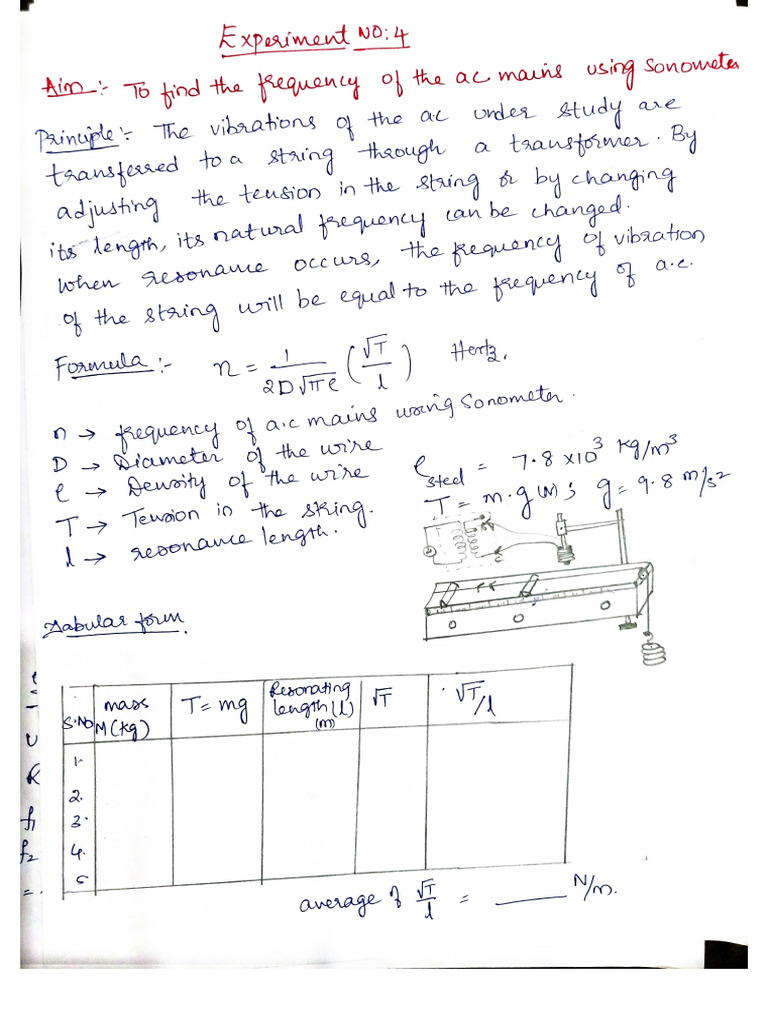 Experiment NO:4
Aim:- To find the frequency of the ac mains using Sonometer
Principle:- The vibrations of the a.c under study are
transferred to a string through a transformer. By
adjusting the tension in the string or by changing
its length, its natural frequency can be changed.
when resonance occurs, the frequency of vibration
of the string will be equal to the frequency of a.c.
Formula:- n = 1/(2D√πρ) (√T/l) Hertz.
n → frequency of a.c mains using Sonometer.
D → Diameter of the wire
ρ → Density of the wire
T → Tension in the string.
l → resonance length.
ρ steel = 7.8 ×10³ kg/m³
T = m.g (N); g = 9.8 m/s²
Tabular form.
S.No mass M(kg) T = mg Resonating length (l) (m) √T √T/l
1.
2.
3.
4.
5
average of √T/l = ____ N/m.
f₁
f₂